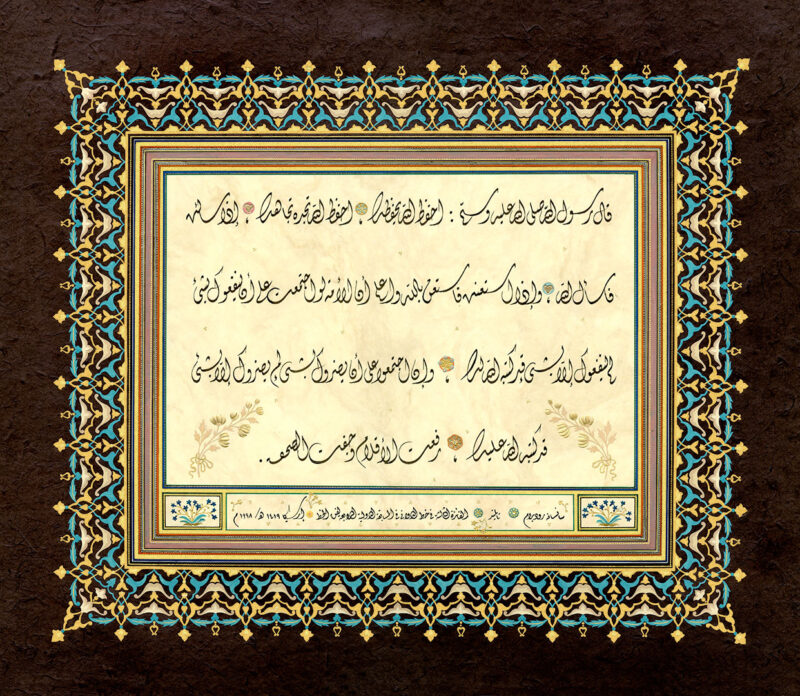 قال رسول الله صلى الله عليه وسلم : احفظ الله يحفظك ، احفظ الله تجده تجاهك ، إذا سألت
فاسأل الله ، وإذا استعنت فاستعن بالله واعلم أن الأمة لو اجتمعت على أن ينفعوك بشئ
لم ينفعوك إلا بشئ قد كتبه الله لك ، وإن اجتمعوا على أن يضروك بشئ لم يضروك إلا بشئ
قد كتبه الله عليك ، رفعت الأقلام وجفت الصحف .
في المسابقة الدولية الخط إرسيكا ١٤١٩ هـ / ١٩٩٨ م